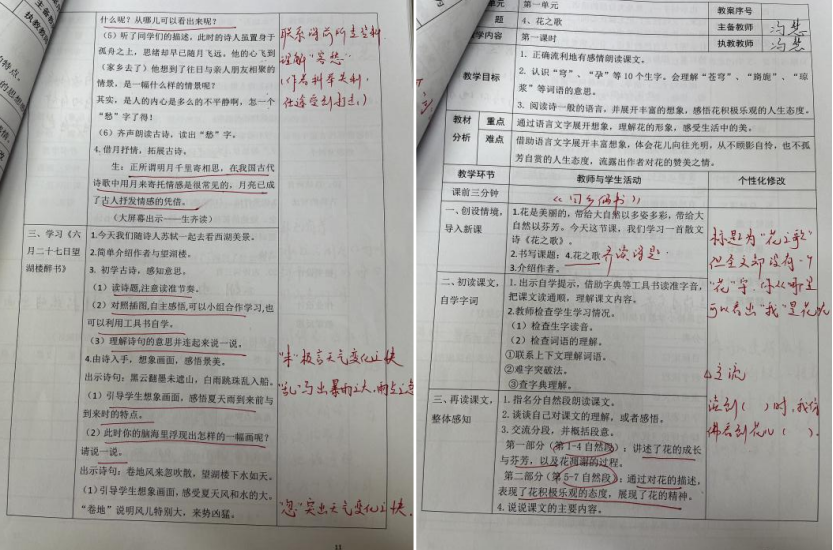 什么呢？从哪儿可以看出来呢？
（5）听了同学们的描述，此时的诗人虽置身于
孤舟之上，思绪却早已随月飞远。他的心飞到
（家乡去了）他想到了往日与亲人朋友相聚的
情景，是一幅什么样的情景呢？
其实，是人的内心是多么的不平静啊，怎一个
“愁”字了得！
（6）齐声朗读古诗，读出“愁”字。
4.借月抒情，拓展古诗。
生：正所谓明月千里寄相思，在我国古代
诗歌中用月来寄托情感是很常见的，月亮已成
了古人抒发情感的凭借。
（大屏幕出示——生齐读）
理解“客愁”
三、学习《六
月二十七日望
湖楼醉书》
1.今天我们随诗人苏轼一起去看西湖美景。
2.简单介绍作者与望湖楼。
3. 初学古诗，感知意思。
（1）读诗题，注意读准节奏。
（2）对照插图，自主感悟，可以小组合作学习，也
可以利用工具书自学。
（3）理解诗句的意思并连起来说一说。
4.由诗入手，想象画面，感悟景美。
出示诗句：黑云翻墨未遮山，白雨跳珠乱入船。
（1）引导学生想象画面，感悟夏天雨到来前与
到来时的特点。
（2）此时你的脑海里浮现出怎样的一幅画呢？
请说一说。
出示诗句：卷地风来忽吹散，望湖楼下水如天。
（1）引导学生想象画面，感受夏天风和水的大。
“卷地”说明风儿特别大，来势凶猛。
“未”极言天气变化之快
“乱”写出暴雨之大，雨点之急
“忽”突出天气变化之快，
主备教
执教教
单元
第一单元
教案序号
题
4、花之歌
主备教师
教学内容
第一课时
执教教师
教学目标
1. 正确流利地有感情朗读课文。
2. 认识“穹”、“孕”等 10 个生字。会理解“苍穹”、“旖旎”、“琼
浆”等词语的意思。
3. 阅读诗一般的语言，并展开丰富的想象，感悟花积极乐观的人生态度。
教材
分析
重点
通过语言文字展开想象，理解花的形象，感受生活中的美。
难点
借助语言文字展开丰富想象，体会花儿向往光明，从不顾影自怜，也不孤
芳自赏的人生态度，流露出作者对花的赞美之情。
教学环节
教师与学生活动
个性化修改
课前三分钟
一、创设情境，
导入新课
1.花是美丽的，带给大自然以多姿多彩，带给大
自然以芬芳。今天这节课，我们学习一首散文
诗《花之歌》。
2. 书写课题：4.花之歌 齐读课题
3.介绍作者。
标题为“花之歌”
但全文却没有一个
“花”字，你从哪里
可以看出“我”是花儿
二、初读课文，
自学字词
1. 出示自学提示，借助字典等工具书读准字音，
把课文读通顺，理解课文内容。
2.教师检查学生学习情况。
（1）检查生字读音。
（2）检查词语的理解。
①联系上下文理解词语。
②难字突破法。
③查字典理解。
交流
三、再读课文，
整体感知
1. 指名分自然段朗读课文。
2. 谈谈自己对课文的理解，或者感悟。
3. 交流分段，并概括段意。
第一部分（第 1-4 自然段）：讲述了花的成长
与芬芳，以及花凋谢的过程。
第二部分（第 5-7 自然段）：通过对花的描述，
表现了花积极乐观的态度，展现了花的精神。
4. 说说课文的主要内容。
读到（ ）时，我仿
佛看到花儿（ ）。